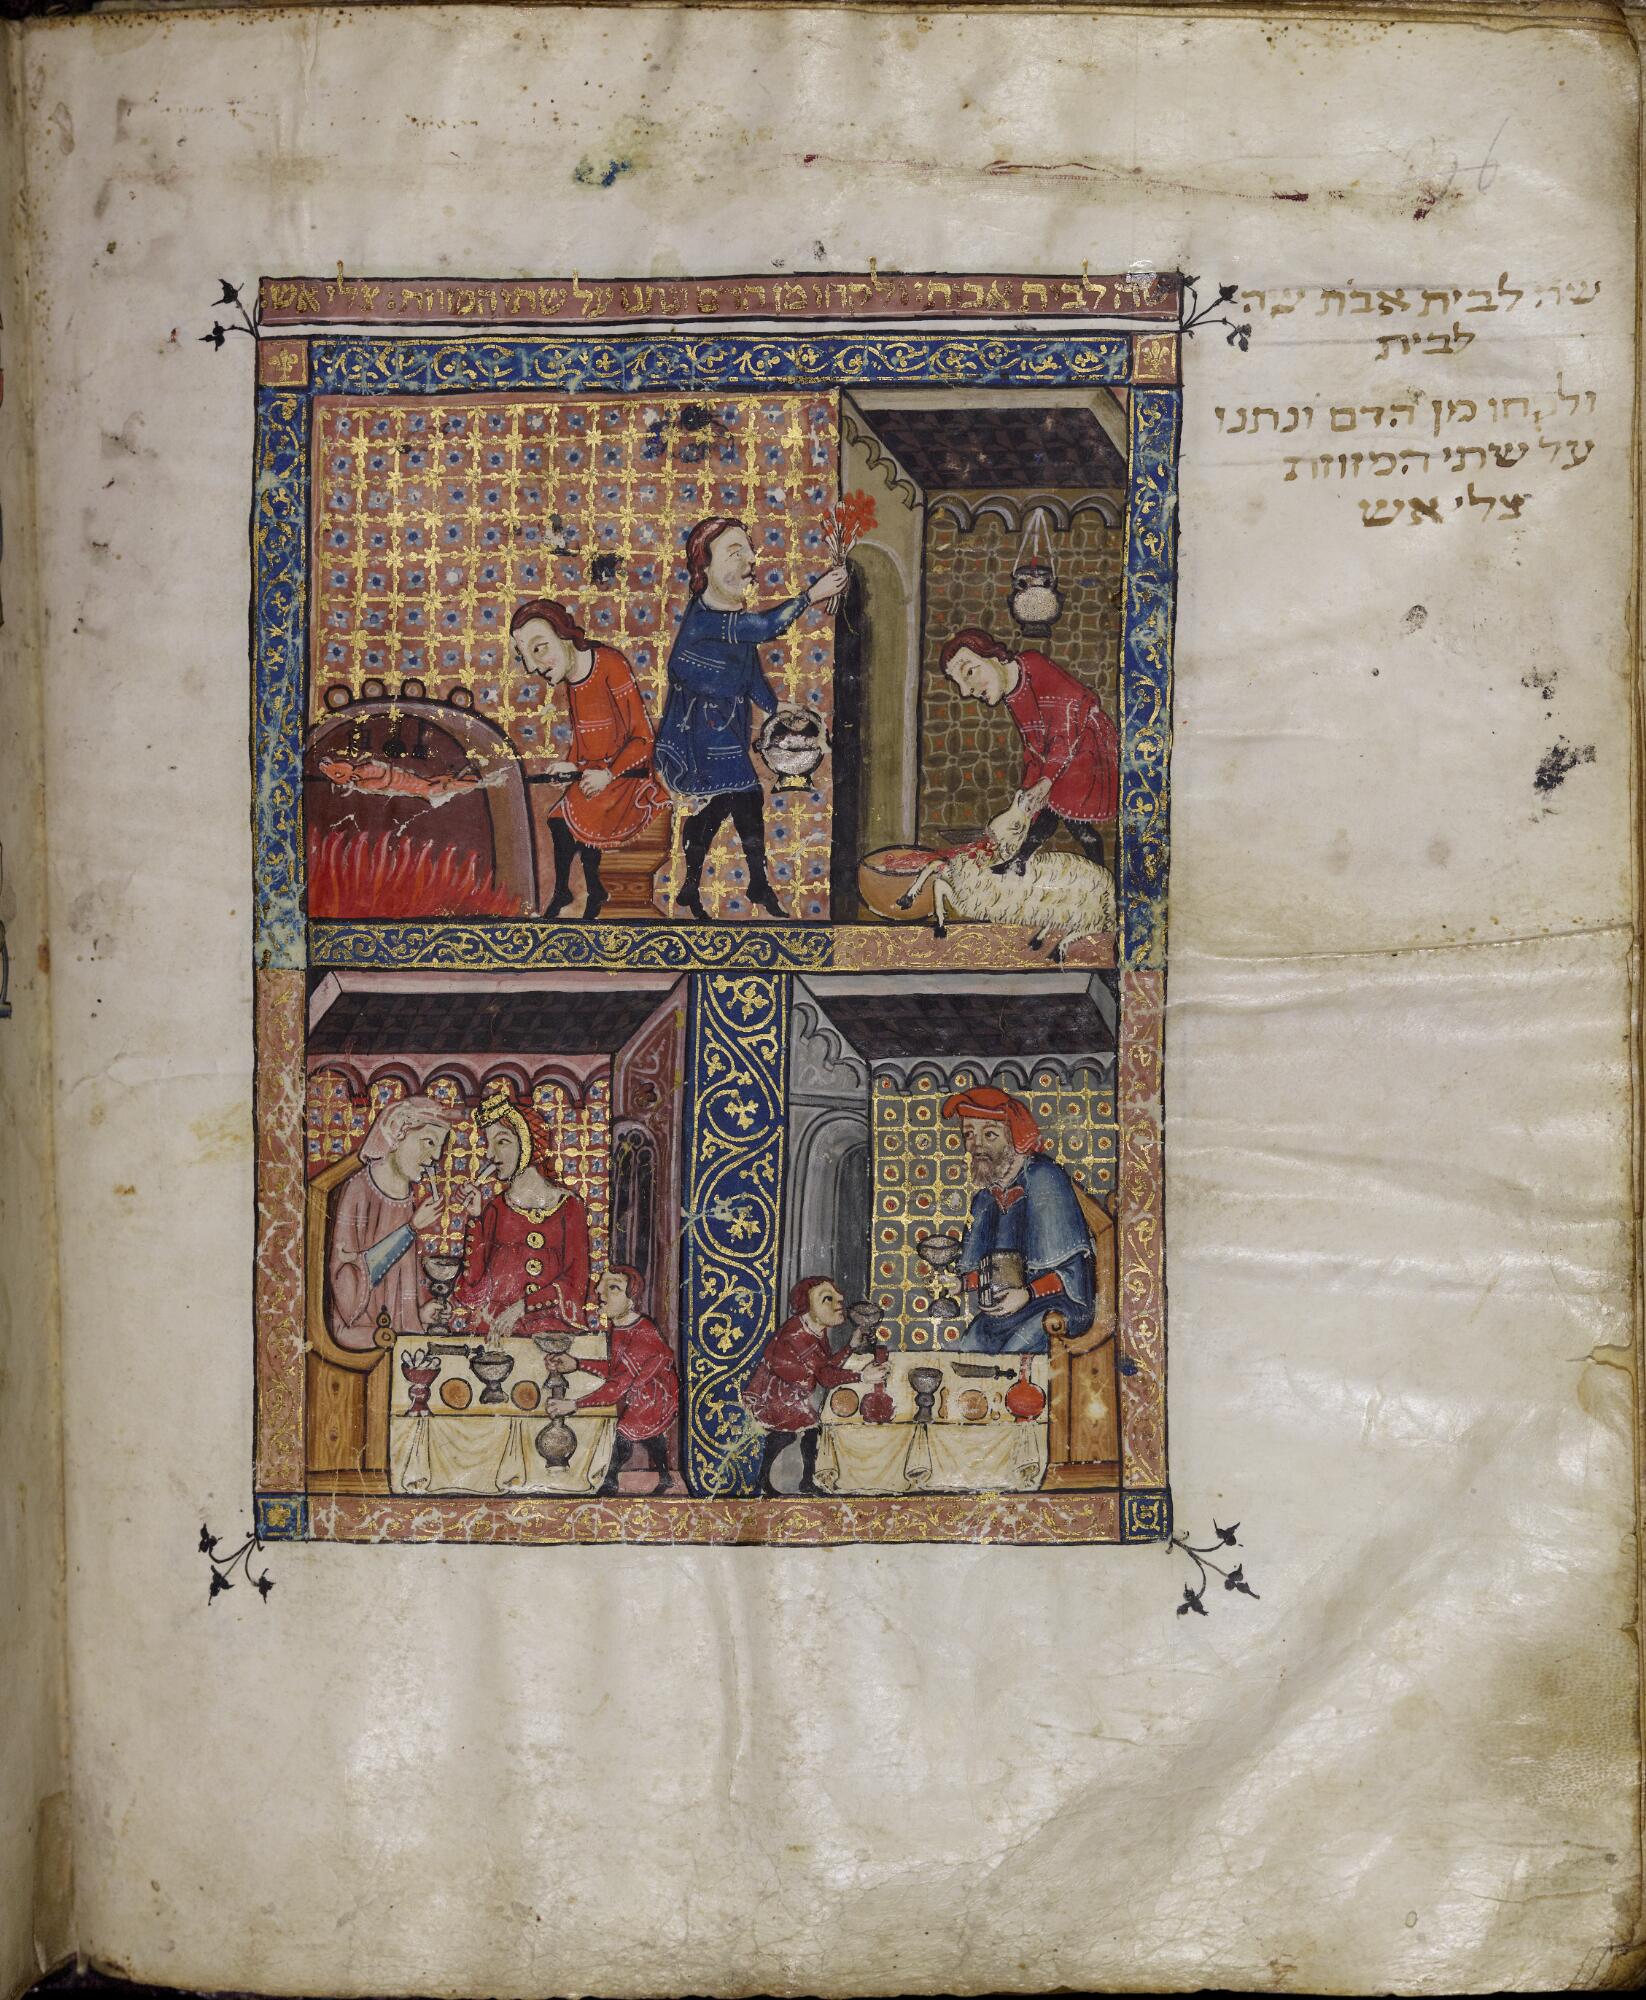 שה לבית אבות: ולקחו מן הדם ונתנו על שתי המזוזת: צלי אש:
שה לבית אבת שה
לבית
ולקחו מן הדם ונתנו
על שתי המזוזת
צלי אש